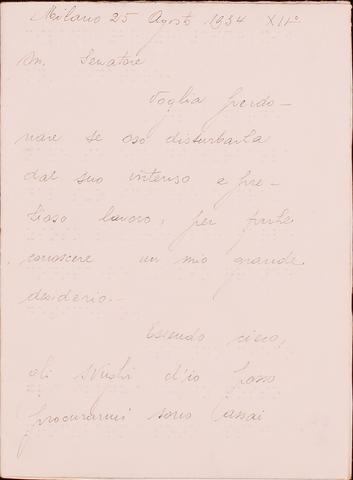 Milano 25 Agosto 1934 XII°
On. Senatore
Voglia perdo-
nare se oso disturbarla
dal suo intenso e pre-
zioso lavoro, per farle
conoscere un mio grande
desiderio.-
Essendo cieco,
gli svaghi ch'io posso
procurarmi sono assai